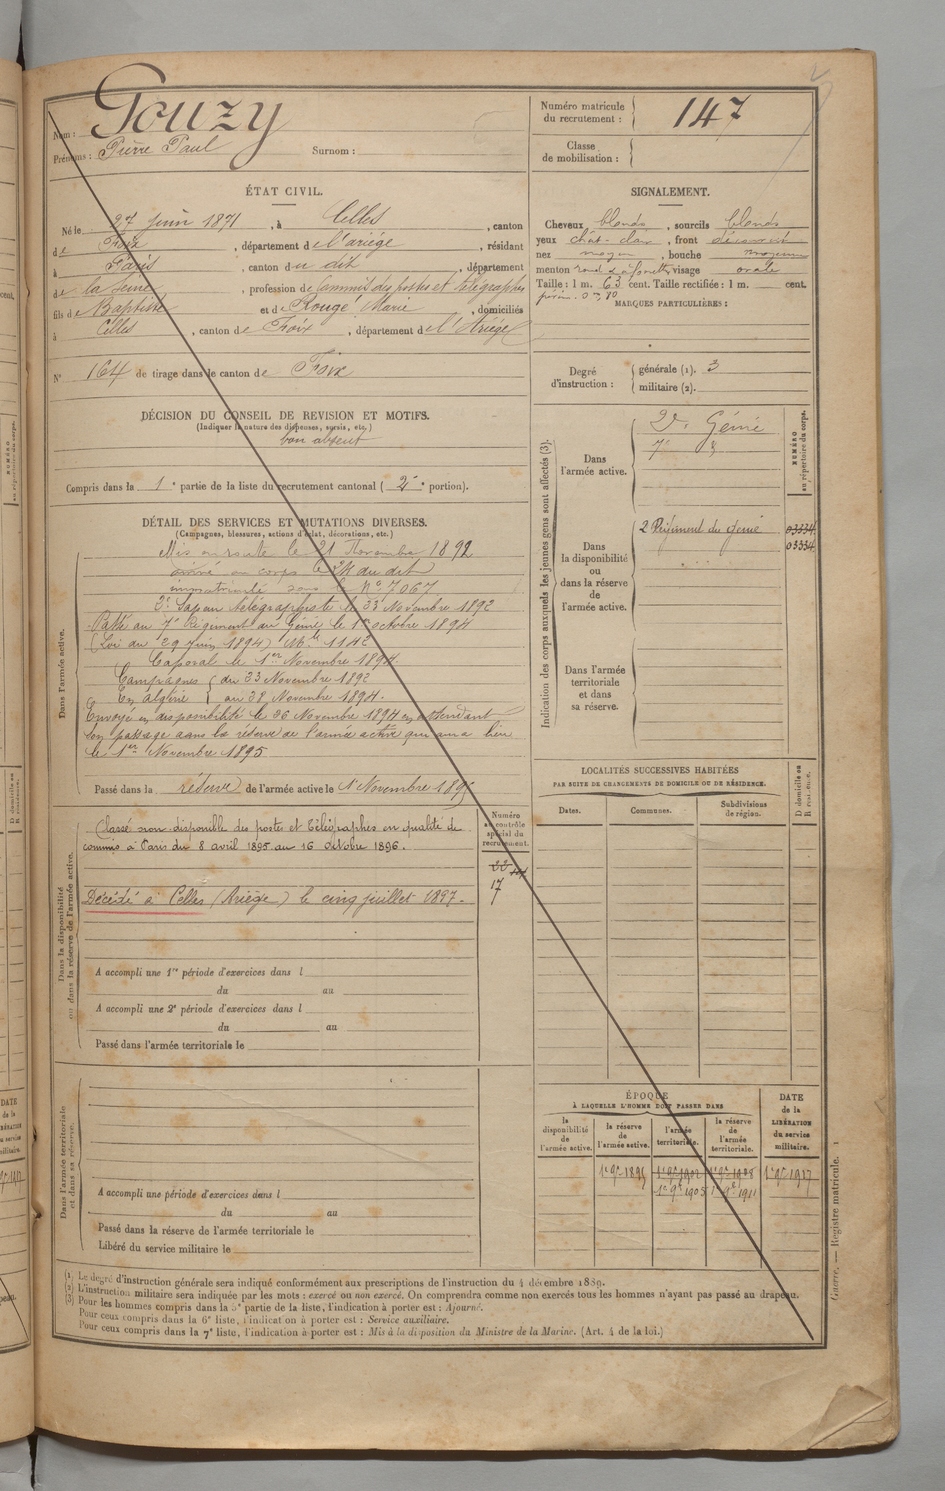 Nom : Gouzy
Prénoms : Pierre Paul Surnom :
Numéro matricule du recrutement : 147
Classe de mobilisation :
ÉTAT CIVIL.
Né le 27 juin 1871, à Celles, canton
de Foix, département de l'ariége, résidant
à Paris, canton du dit, département
de la Seine, profession de Commis des postes et télégraphes
fils de Baptiste et de Rougé Marie, domiciliés
à Celles, canton de Foix, département de l'Ariége
N° 164 de tirage dans le canton de Foix
SIGNALEMENT.
Cheveux blonds, sourcils blonds
yeux chât-clair, front découvert
nez moyen, bouche moyenne
menton rond à fossette visage ovale
Taille : 1 m. 63 cent. Taille rectifiée : 1 m. cent.
MARQUES PARTICULIÈRES :
Degré d'instruction : générale (1). 3
militaire (2).
DÉCISION DU CONSEIL DE REVISION ET MOTIFS.
(Indiquer la nature des dispenses, sursis, etc.)
bon absent
Compris dans la 1e partie de la liste du recrutement cantonal (2e portion).
DÉTAIL DES SERVICES ET MUTATIONS DIVERSES.
(Campagnes, blessures, actions d'éclat, décorations, etc.)
Dans l'armée active.
Mis en route le 21 Novembre 1892
arrivé au corps le 24 du dit
immatriculé sous le N° 7067
2e Sapeur télégraphiste le 23 Novembre 1892
Passé au 7e Régiment du Génie le 1er octobre 1894
(Loi du 29 juin 1894) Mle 1142
Caporal le 1er Novembre 1894
Campagnes { du 23 Novembre 1892
En algérie } au 28 Novembre 1894.
Envoyé en disponibilité le 26 Novembre 1894 en attendant
son passage dans la réserve de l'armée active qui aura lieu
le 1er Novembre 1895
Passé dans la réserve de l'armée active le 1er Novembre 1895
Indication des corps auxquels les jeunes gens sont affectés (3).
NUMÉRO au répertoire du corps.
Dans l'armée active.
2e Génie
7e d°
Dans la disponibilité ou dans la réserve de l'armée active.
2 Régiment du génie 03334
03334
Dans l'armée territoriale et dans sa réserve.
LOCALITÉS SUCCESSIVES HABITÉES
PAR SUITE DE CHANGEMENTS DE DOMICILE OU DE RÉSIDENCE.
Dates. Communes. Subdivisions de région. D domicile ou R résidence.
Dans la disponibilité ou dans la réserve de l'armée active.
Numéro au contrôle spécial du recrutement.
Classé non-disponible des postes et télégraphes en qualité de
commis à Paris du 8 avril 1895 au 16 Octobre 1896.
17
Décédé à Celles (Ariège) le cinq juillet 1897.
A accompli une 1re période d'exercices dans l
du au
A accompli une 2e période d'exercices dans l
du au
Passé dans l'armée territoriale le
Dans l'armée territoriale et dans sa réserve.
A accompli une période d'exercices dans l
du au
Passé dans la réserve de l'armée territoriale le
Libéré du service militaire le
ÉPOQUE
À LAQUELLE L'HOMME DOIT PASSER DANS
la disponibilité de l'armée active. la réserve de l'armée active. l'armée territoriale. la réserve de l'armée territoriale. DATE de la LIBÉRATION du service militaire.
1er 9bre 1895 1er 9bre 1902 1er 9bre 1908 1er 9bre 1917
1er 9bre 1905 1er 9bre 1911
(1) Le degré d'instruction générale sera indiqué conformément aux prescriptions de l'instruction du 4 décembre 1889.
(2) L'instruction militaire sera indiquée par les mots : exercé ou non exercé. On comprendra comme non exercés tous les hommes n'ayant pas passé au drapeau.
(3) Pour les hommes compris dans la 5e partie de la liste, l'indication à porter est : Ajourné.
Pour ceux compris dans la 6e liste, l'indication à porter est : Service auxiliaire.
Pour ceux compris dans la 7e liste, l'indication à porter est : Mis à la disposition du Ministre de la Marine. (Art. 4 de la loi.)
Guerre. — Registre matricule. 1